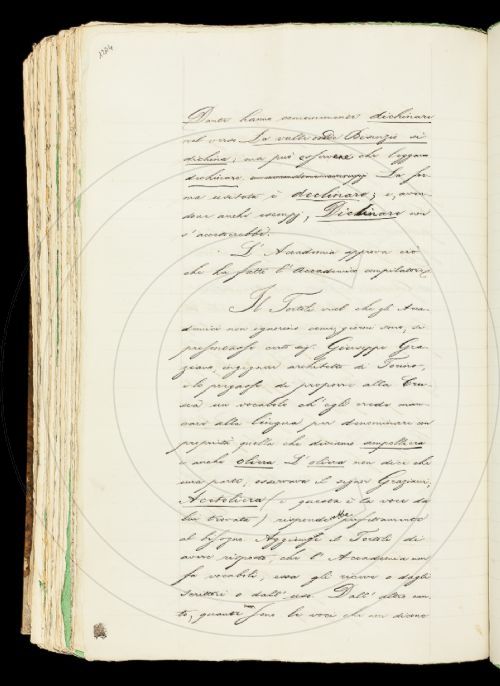 Dante hanno comunemente dichinare
nel verso La valle onde Bisenzio si
dichina; ma può essere che leggano
dichinare La for-
ma usitata è declinare; e, aven-
done anche esempj, Dichinare non
s'accetterebbe.
L'Accademia approva ciò
che ha fatto l'Accademico compilatore.
Il Tortoli vuol che gli Acca-
demici non ignorino come, giorni sono, si
presentasse certo sig. Giuseppe Gra-
ziani, ingegnere architetto di Torino,
e lo pregasse di proporre alla Cru-
sca un vocabolo ch'egli crede man-
care alla lingua per denominare con
proprietà quella che diciamo ampolliera
e anche oliera. L'oliera non dice che
una parte, osservava il signor Graziani;
Acetoliera (e questa è la voce da
lui trovata) risponderebbe perfettamente
al bisogno. Aggiunge il Tortoli di
avere risposto, che l'Accademia non
fa vocaboli, essa gli riceve o dagli
scrittori o dall'uso. Dall'altro can-
to, quante son le voci che non dicono